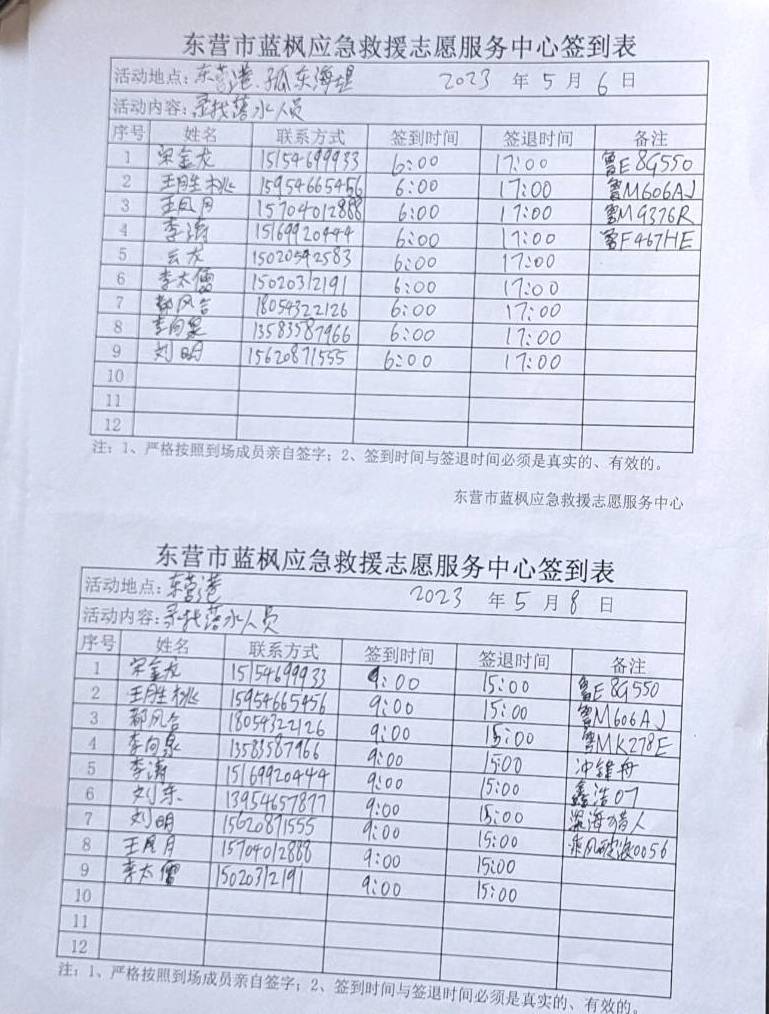 东营市蓝枫应急救援志愿服务中心签到表
活动地点：东营港.孤东海堤 2023 年 5 月 6 日
活动内容：寻找落水人员
序号 姓名 联系方式 签到时间 签退时间 备注
1 宋金龙 15154699933 6:00 17:00 鲁E8G550
2 王胜桃 15954665456 6:00 17:00 鲁M606AJ
3 王凤月 15704012888 6:00 17:00 鲁M9376R
4 李涛 15169920444 6:00 17:00 鲁F467HE
5 云龙 15020542583 6:00 17:00
6 李太儒 15020312191 6:00 17:00
7 郝风合 18054322126 6:00 17:00
8 李向泉 13583587966 6:00 17:00
9 刘明 15620871555 6:00 17:00
10
11
12
注：1、严格按照到场成员亲自签字；2、签到时间与签退时间必须是真实的、有效的。
东营市蓝枫应急救援志愿服务中心
东营市蓝枫应急救援志愿服务中心签到表
活动地点：东营港 2023 年 5 月 8 日
活动内容：寻找落水人员
序号 姓名 联系方式 签到时间 签退时间 备注
1 宋金龙 15154699933 9:00 15:00 鲁E8G550
2 王胜桃 15954665456 9:00 15:00 鲁M606AJ
3 郝风合 18054322126 9:00 15:00 鲁MK278E
4 李向泉 13583587966 9:00 15:00 冲锋舟
5 李涛 15169920444 9:00 15:00 鑫浩07
6 刘东 13954657877 9:00 15:00 深海猎人
7 刘明 15620871555 9:00 15:00 乘风破浪0056
8 王凤月 15704012888 9:00 15:00
9 李太儒 15020312191 9:00 15:00
10
11
12
注：1、严格按照到场成员亲自签字；2、签到时间与签退时间必须是真实的、有效的。